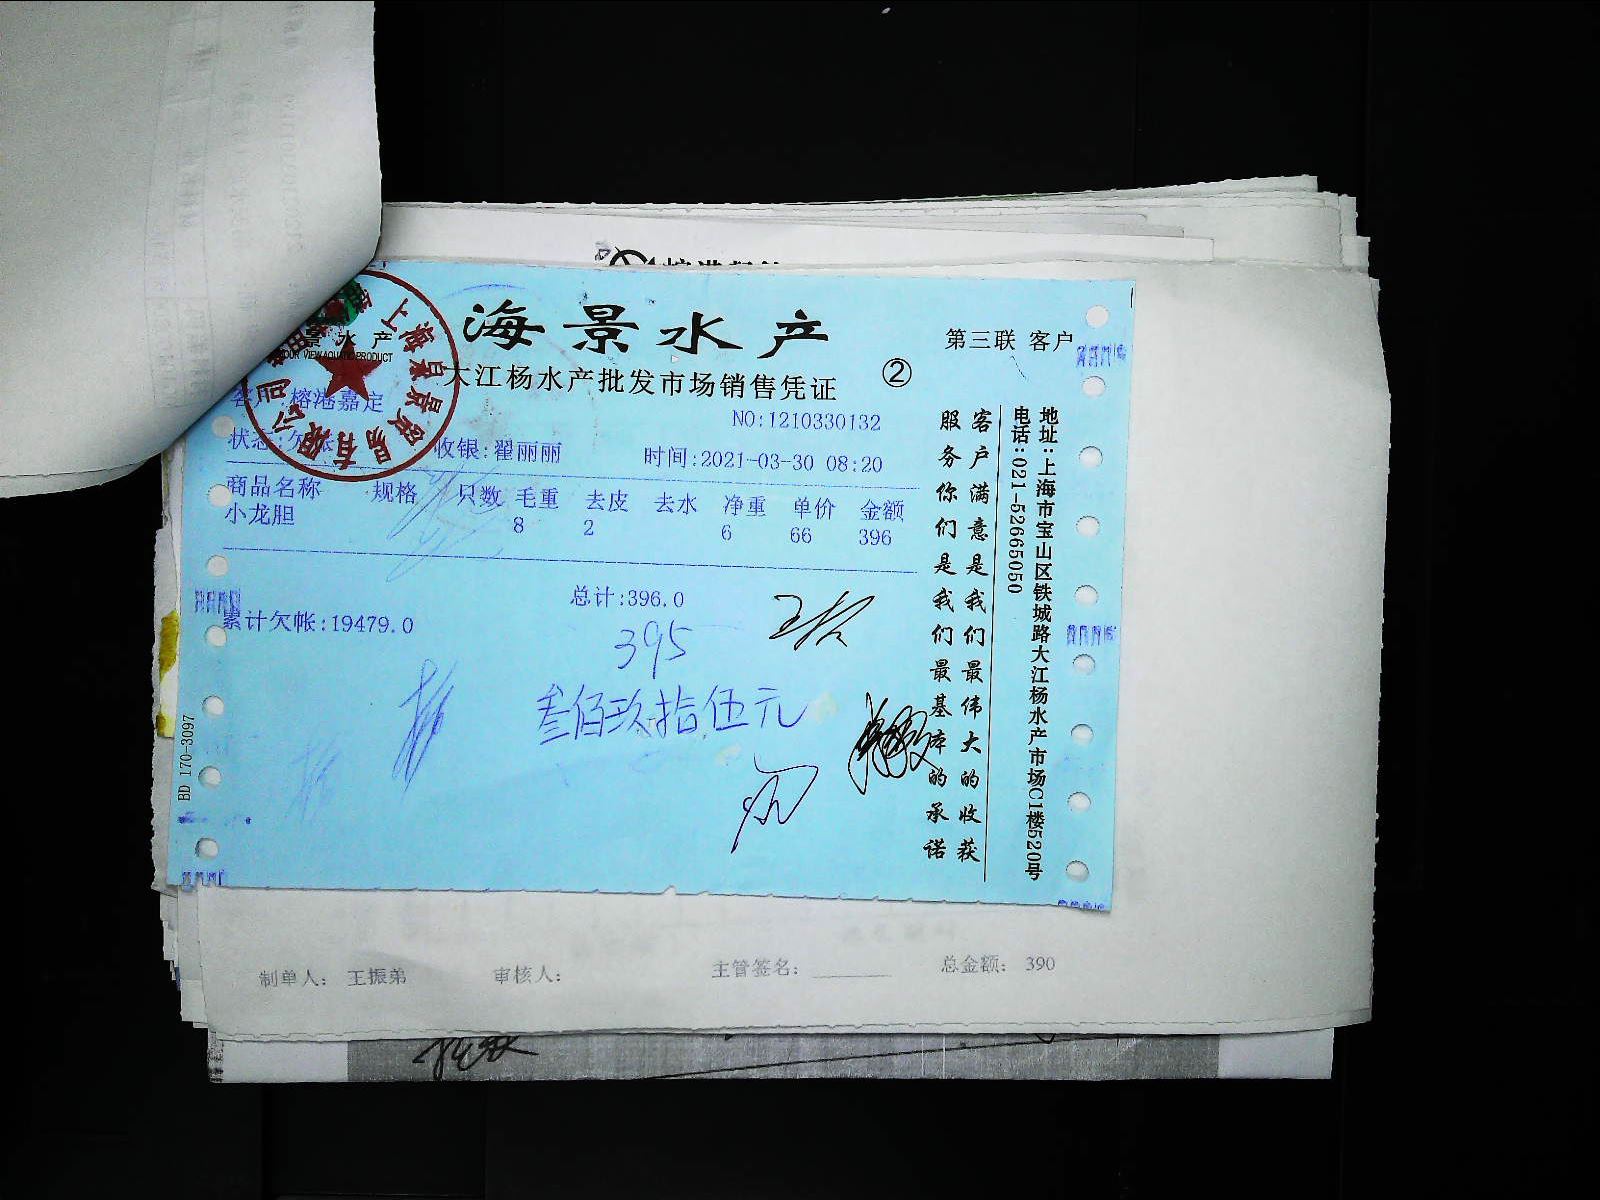 海景水产
大江杨水产批发市场销售凭证
②
第三联 客户
景水产
VIEW AQUATIC PRODUCT
客户:榕港嘉定
NO:1210330132
状态:欠帐
收银:翟丽丽
时间:2021-03-30 08:20
商品名称 规格 只数 毛重 去皮 去水 净重 单价 金额
小龙胆 8 2 6 66 396
总计:396.0
累计欠帐:19479.0
395
叁佰玖拾伍元
客户满意是我们最伟大的收获
服务你们是我们最基本的承诺
地址:上海市宝山区铁城路大江杨水产市场C1楼520号
电话:021-52665050
BD 170-3097
制单人: 王振弟 审核人: 主管签名: 总金额: 390